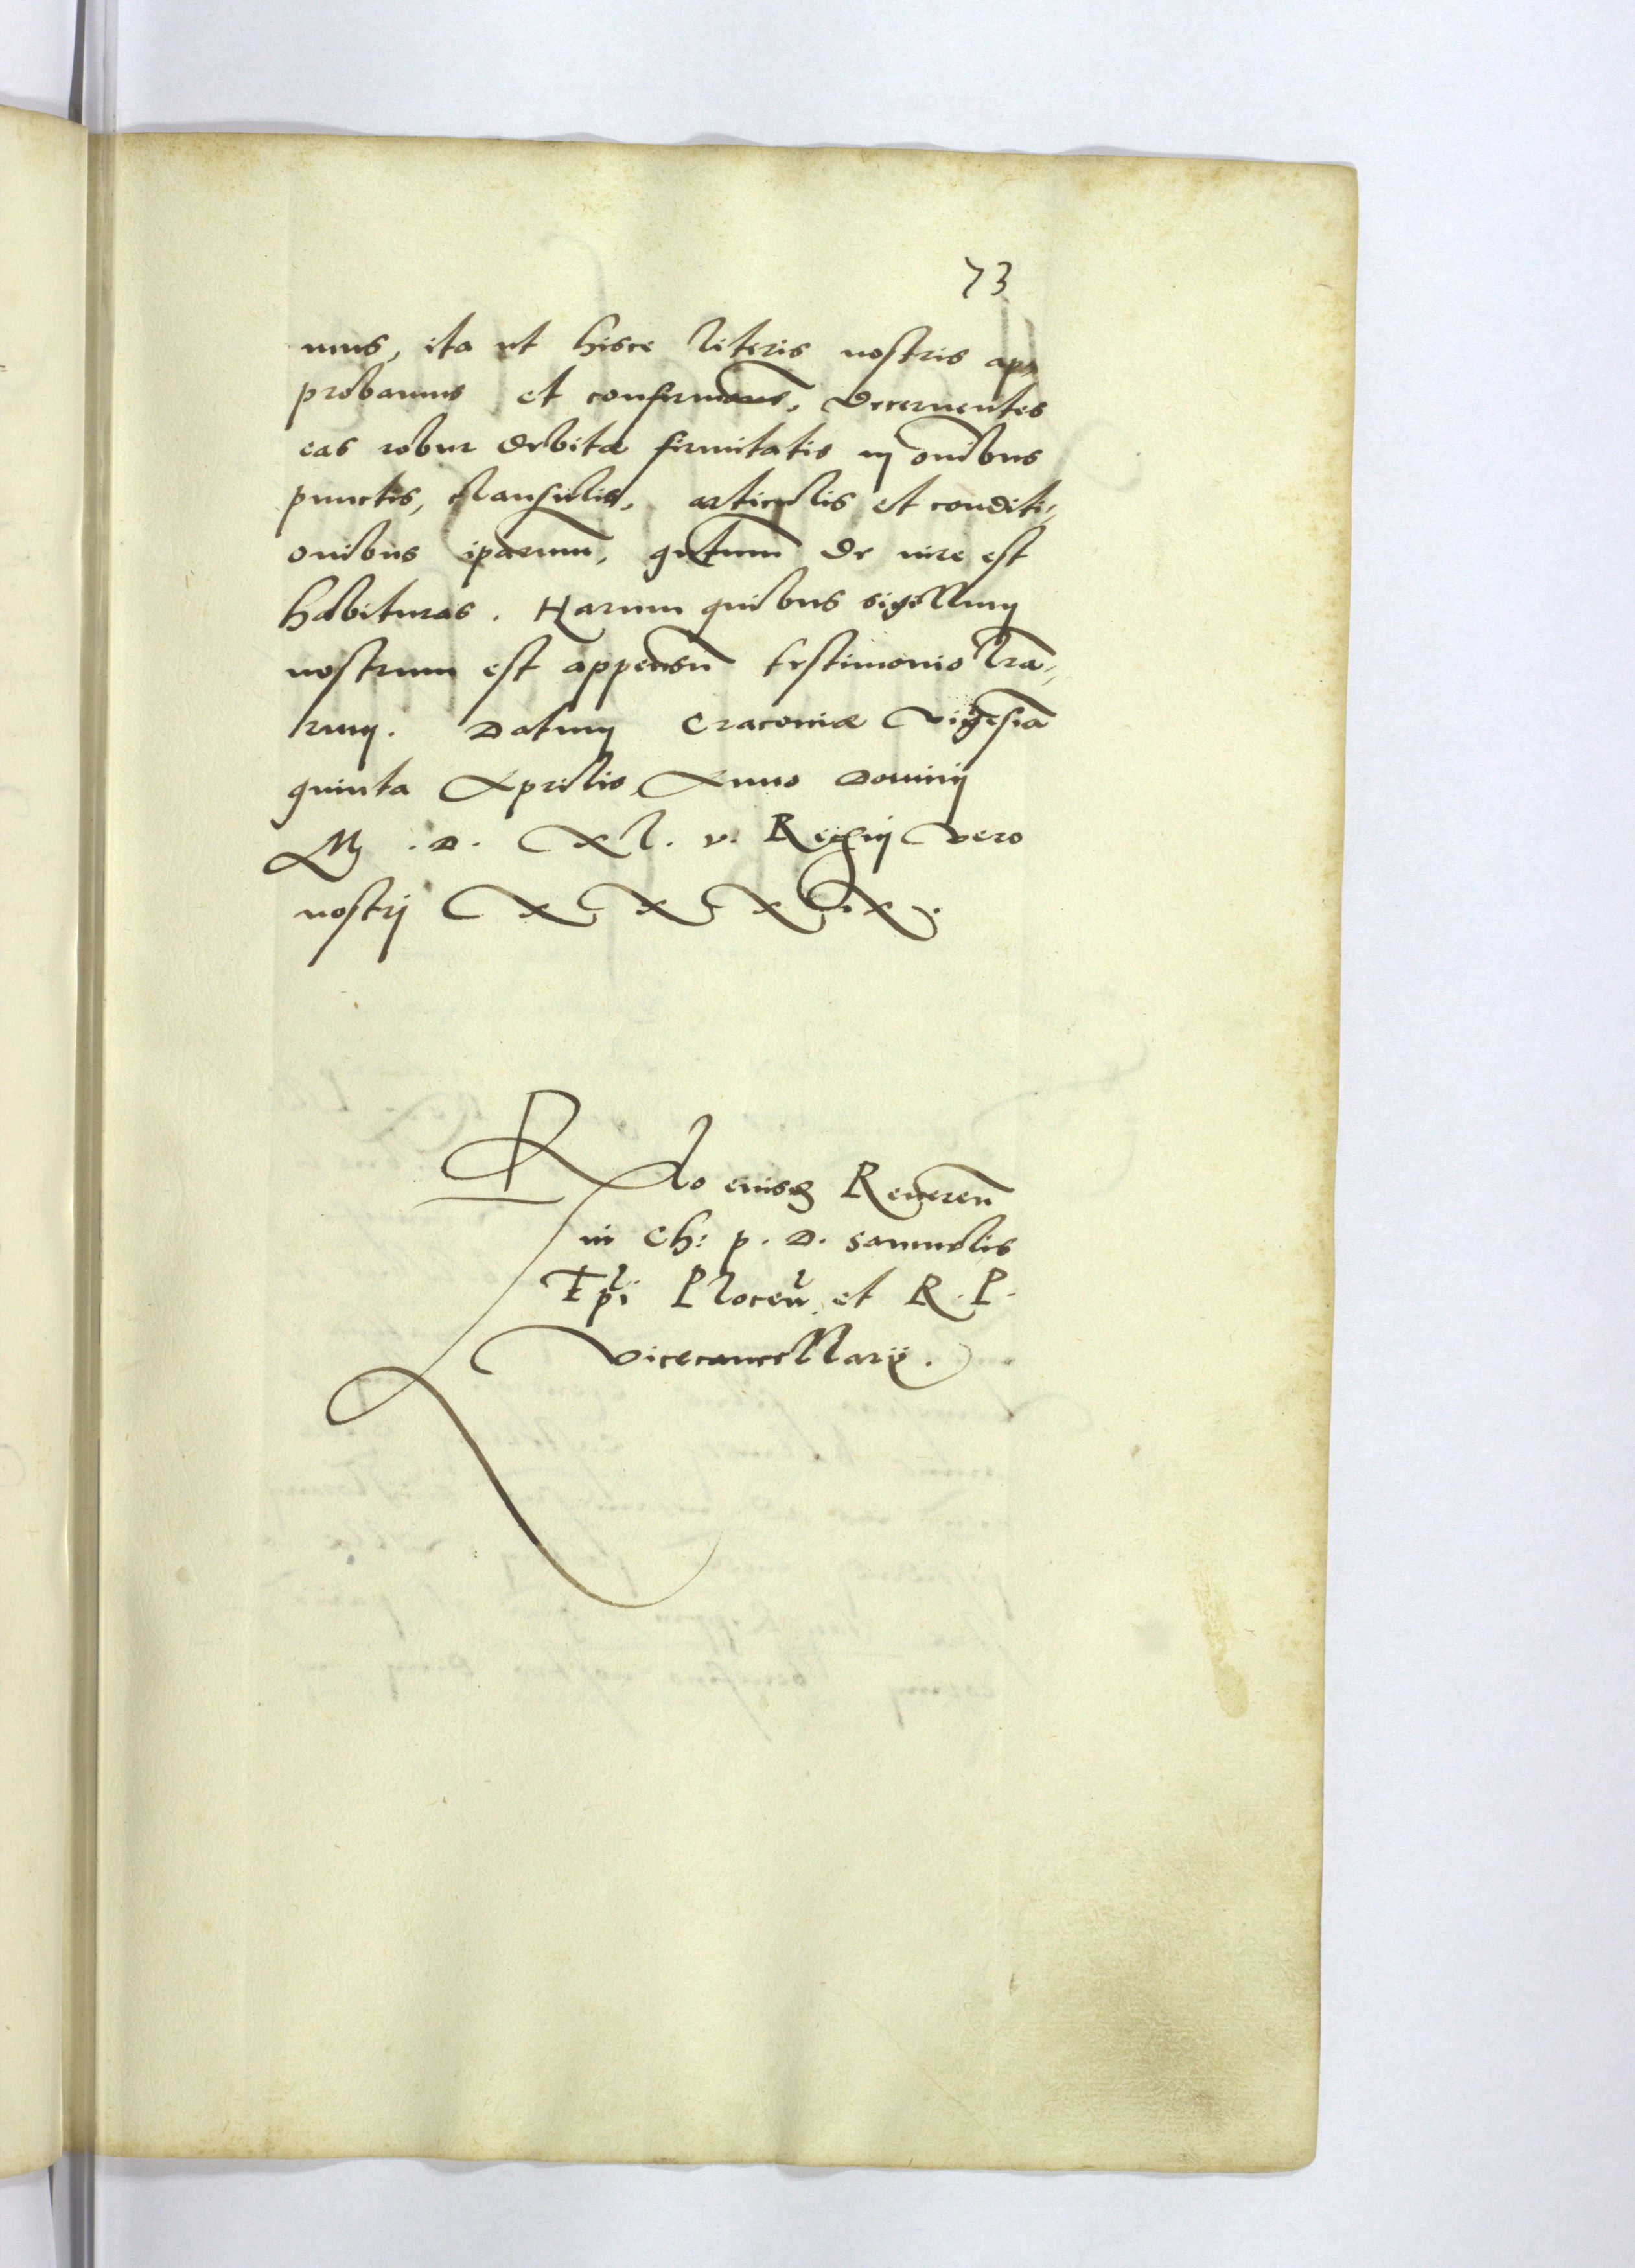 73
mus, ita ut hisce literis nostris ap,
probamus et confirmams̄, decernentes
eas robur debitæ firmitatis in om̄ibus
punctis, clausulis, articulis et conditi,
onibus ip̄arum, qūtum de iure est
habituras. Harum quibus sigillum
nostrum est appensū testimonio l̄ra,
rum. Datum Cracoviæ Vigesiā
quinta Aprilis Anno Domini
M. D. XL. v. Regni vero
nostri XXXIX.
R̄do eiusdꝫ Reveren̄
in Ch: p. D. Samuelis
Ep̄i Plocen̄ et R. P.
Vicecancellarij.